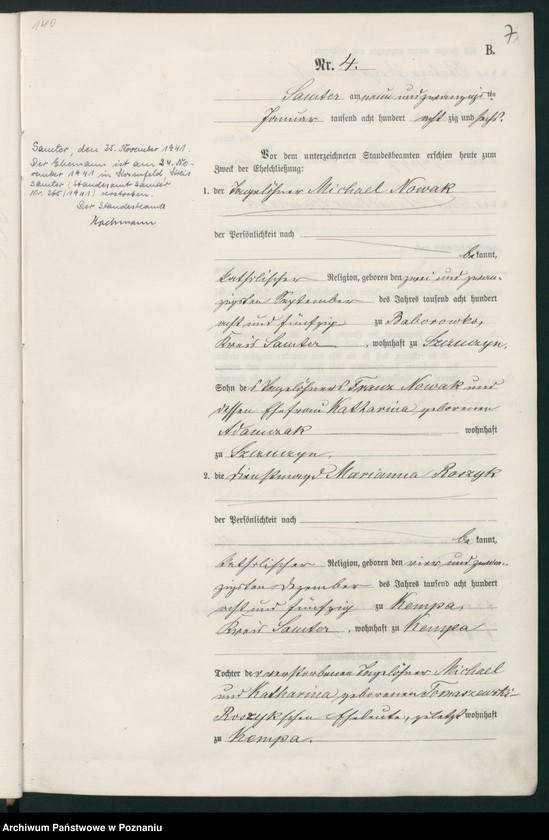 140
7
B.
Nr. 4.
Samter am neun und zwanzigsten
Januar tausend acht hundert achtzig und sechs.
Samter, den 25. November 1941.
Der Ehemann ist am 24. No-
vember 1941 in Kreis
Samter (Standesamt Samter
Nr. 265/1941) verstorben.
Der Standesbeamte
Vor dem unterzeichneten Standesbeamten erschien heute zum
Zweck der Eheschließung:
1. der Tagelöhner Michael Nowak
der Persönlichkeit nach
bekannt,
katholischer Religion, geboren den zwei und zwan-
zigsten September des Jahres tausend acht hundert
acht und fünfzig zu Baborowko,
Kreis Samter, wohnhaft zu Szczuczyn.
Sohn des Tagelöhners Franz Nowak und
dessen Ehefrau Katharina geborenen
Adamczak wohnhaft
zu Szczuczyn.
2. die Dienstmagd Marianna Roszyk
der Persönlichkeit nach
bekannt,
katholischer Religion, geboren den vier und zwan-
zigsten Dezember des Jahres tausend acht hundert
acht und fünfzig zu Kempa,
Kreis Samter, wohnhaft zu Kempa
Tochter der verstorbenen Tagelöhner Michael
und Katharina, geborenen Tomaszewska-
Roszyk'schen Eheleute, zuletzt wohnhaft
zu Kempa.
Archiwum Państwowe w Poznaniu